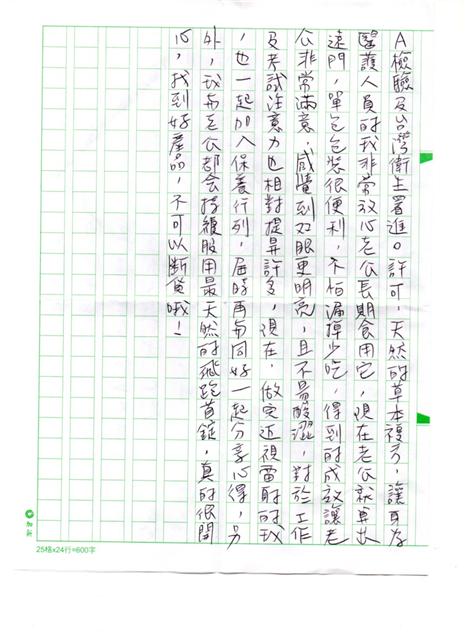 A檢驗及台灣衛生署進口許可，天然的草本複方，讓身為
醫護人員的我非常放心老公長期食用它，現在老公就算出
遠門，單包包裝很便利，不怕漏掉少吃，得到的成效讓老
公非常滿意，感覺到双眼更明亮，且不易酸澀，對於工作
及考試注意力也相對提昇許多，現在，做完近視雷射的我
，也一起加入保養行列，屆時再與同好一起分享心得，另
外，我和老公都會持續服用最天然的飛跑首錠，真的很開
心，找到好產品，不可以斷貨哦！
25格x24行=600字